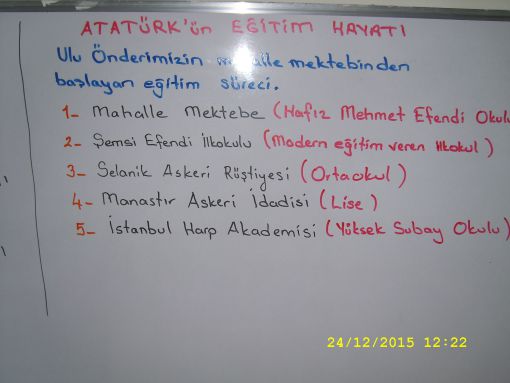 ATATÜRK'ün EĞİTİM HAYATI
Ulu Önderimizin mahalle mektebinden
başlayan eğitim süreci.
1- Mahalle Mektebe (Hafız Mehmet Efendi Okulu
2- Şemsi Efendi İlkokulu (Modern eğitim veren ilkokul)
3- Selanik Askeri Rüştiyesi (Ortaokul)
4- Manastır Askeri İdadisi (Lise)
5- İstanbul Harp Akademisi (Yüksek Subay Okulu)
24/12/2015 12:22